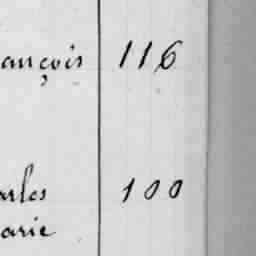 ançois 116
arles 100
arie